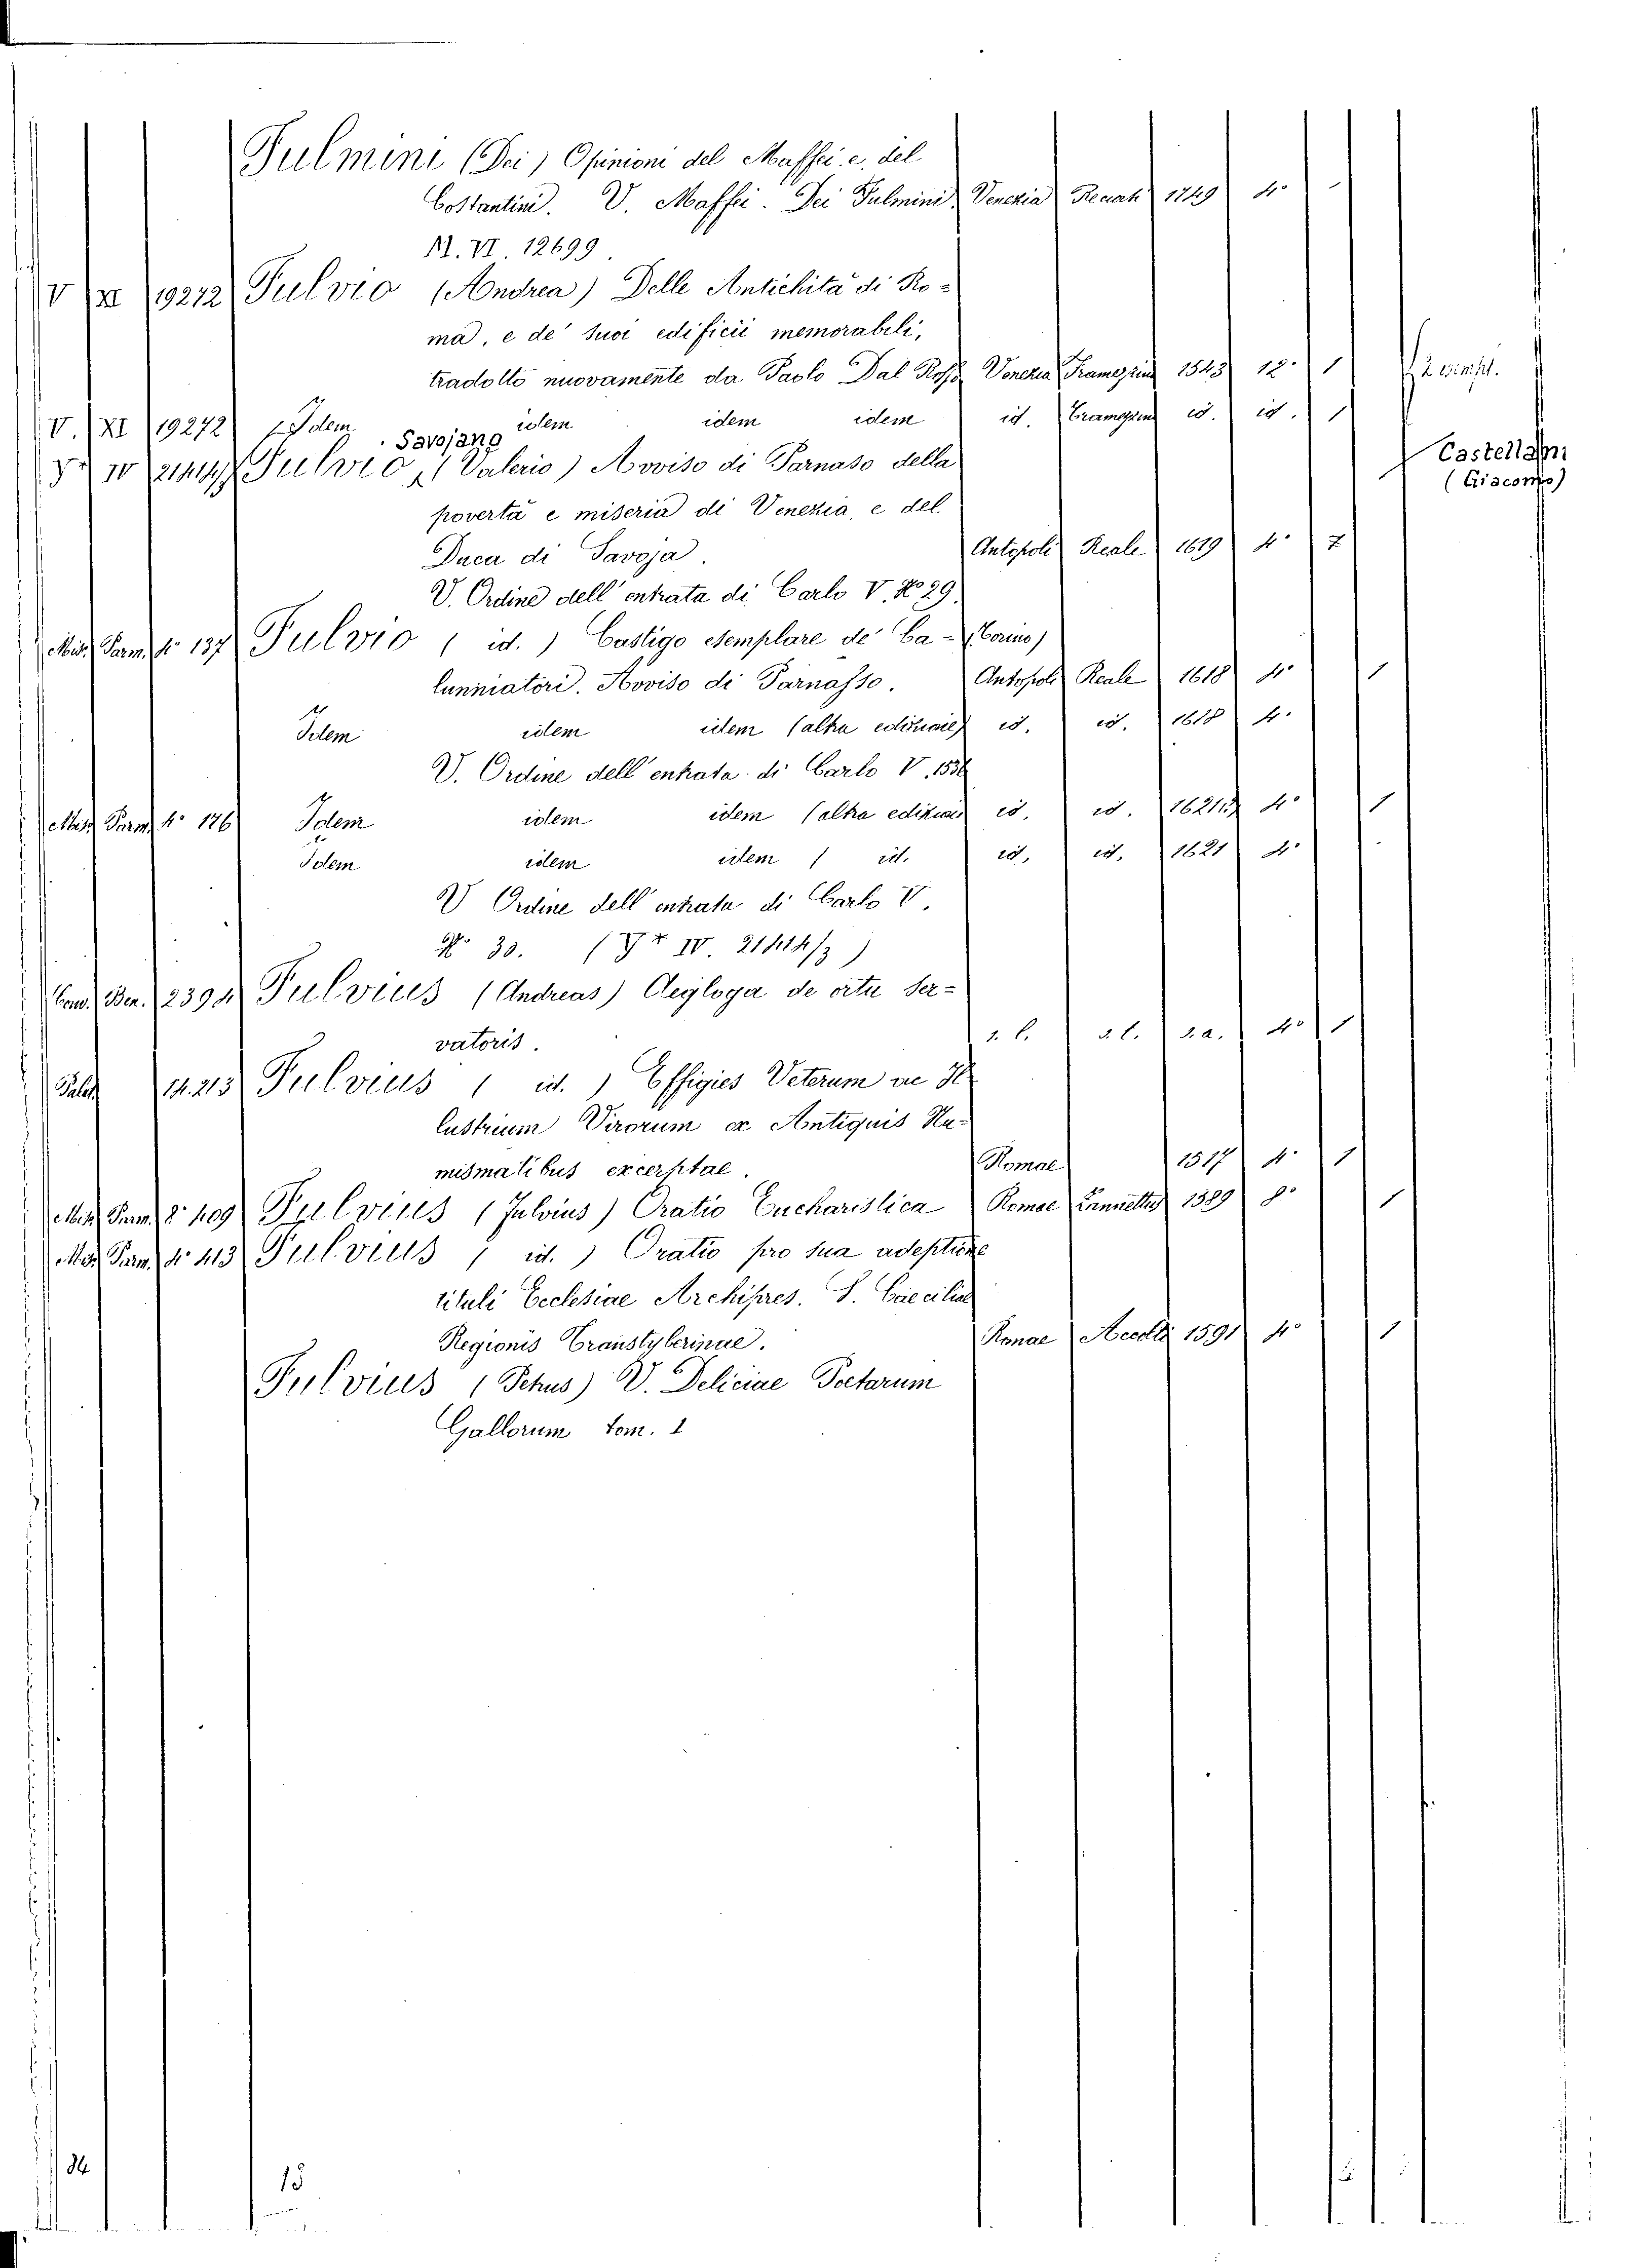 Fulmini (Dei) Opinioni del Maffei e del
Costantini. V. Maffei. Dei Fulmini Venezia 1749 4°
M. VI. 12699.
V XI 19272 Fulvio (Andrea) Delle Antichità di Ro-
ma, e de' suoi edificii memorabili,
tradotto nuovamente da Paolo Dal Rosso Venezia Tramezzino 1543 12° 1 2 esempl.
V. XI 19272 Idem idem idem idem id. Tramezzino id. id. 1
Savojano Castellani
(Giacomo)
IV Fulvio (Valerio) Avviso di Parnaso della
povertà e miseria di Venezia, e del
Duca di Savoja. Antopoli Reale 1619 4°
V. Ordine dell'entrata di Carlo V. N° 29.
Misc. Parm. 4° 137 Fulvio (id.) Castigo esemplare de' Ca-
lunniatori. Avviso di Parnasso. Antopoli Reale 1618 4° 1
Idem idem idem (altra edizione) id. id. 1618 4°
V. Ordine dell'entrata di Carlo V. 1536
Misc. Parm. 4° 176 Idem idem idem (altra edizione) id. id. 1621 4° 1
Idem idem idem ( id. id. id. 1621 4°
V Ordine dell'entrata di Carlo V.
N° 30. IV. 21414/3)
Ben. 2394 Fulvius (Andreas) Aegloga de ortu Ser-
vatoris. s. l. s. l. s. a. 4° 1
Palat 14.213 Fulvius (id.) Effigies Veterum ac Il-
lustrium Virorum ex Antiquis Nu-
mismatibus excerptae. Romae 1517 4° 1
Misc. Parm. 8° 409 Fulvius (Julvius) Oratio Eucharistica Romae Zannettus 1589 8° 1
Misc. Parm. 4° 413 Fulvius (id.) Oratio pro sua adeptione
tituli Ecclesiae Archipres. S. Caeciliae
Regionis Transtyberinae. Romae Accolti 1591 4° 1
Fulvius (Petrus) V. Deliciae Poetarum
Gallorum tom. 1
15